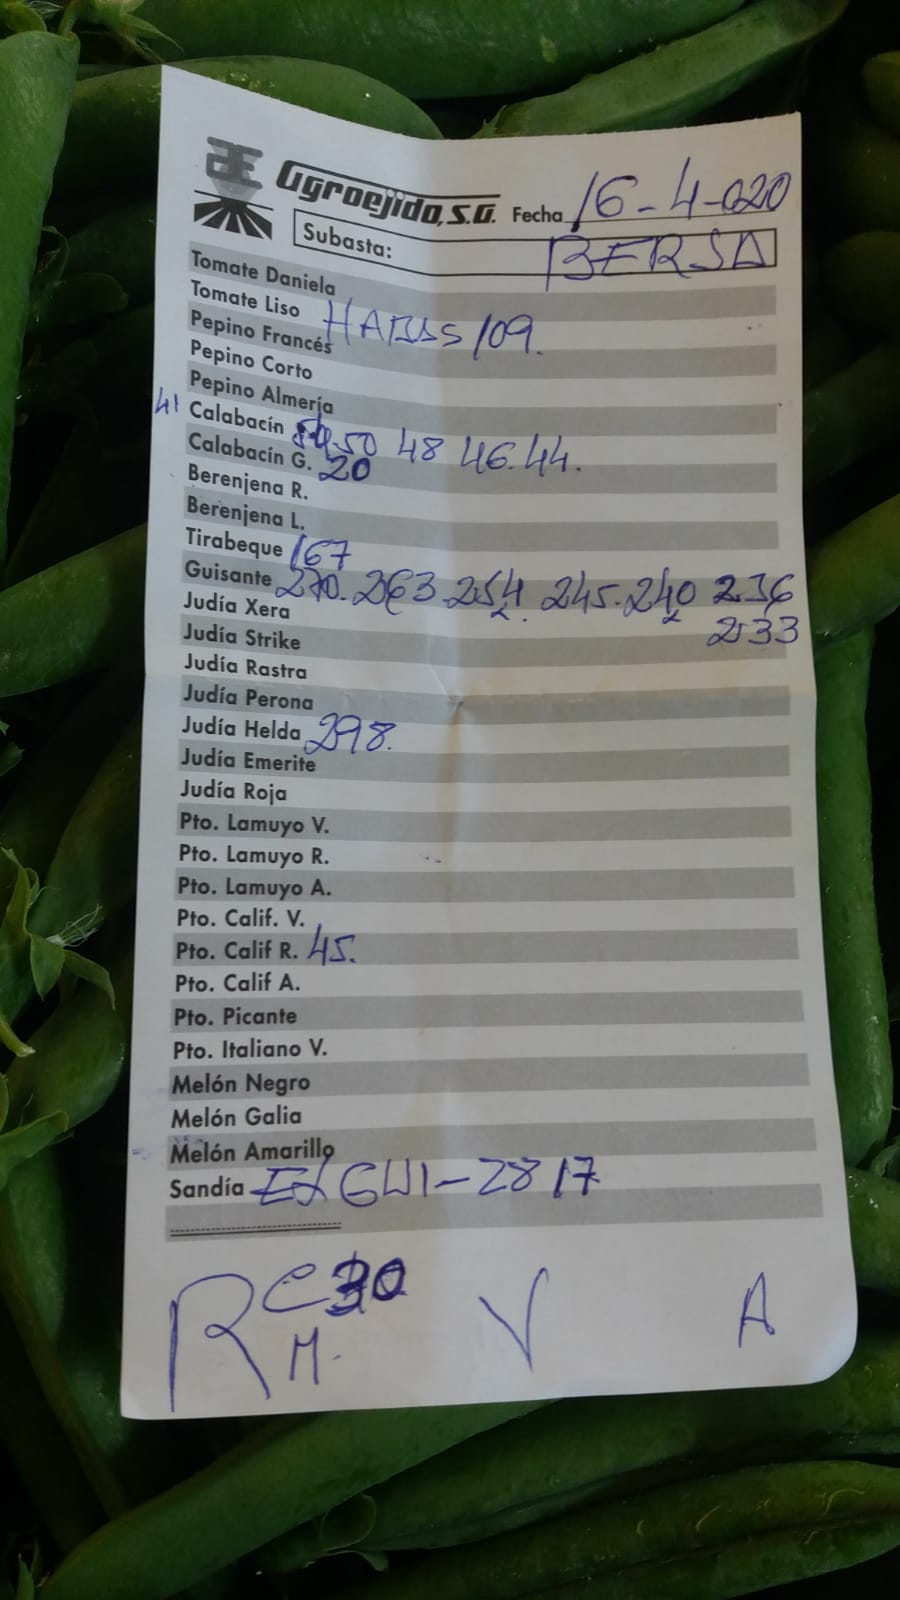 Agroejido, S.A. Fecha 16-4-020
Subasta: BERJA
Tomate Daniela
Tomate Liso HABAS 109.
Pepino Francés
Pepino Corto
Pepino Almería
41 Calabacín 50 48 46.44.
Calabacín G. 20
Berenjena R.
Berenjena L.
Tirabeque 167
Guisante 270. 263 254 245. 240 236
Judía Xera 2. 2 233
Judía Strike
Judía Rastra
Judía Perona
Judía Helda 298.
Judía Emerite
Judía Roja
Pto. Lamuyo V.
Pto. Lamuyo R.
Pto. Lamuyo A.
Pto. Calif. V.
Pto. Calif R. 45.
Pto. Calif A.
Pto. Picante
Pto. Italiano V.
Melón Negro
Melón Galia
Melón Amarillo
Sandía - 28 17
R C 30 V A
M.